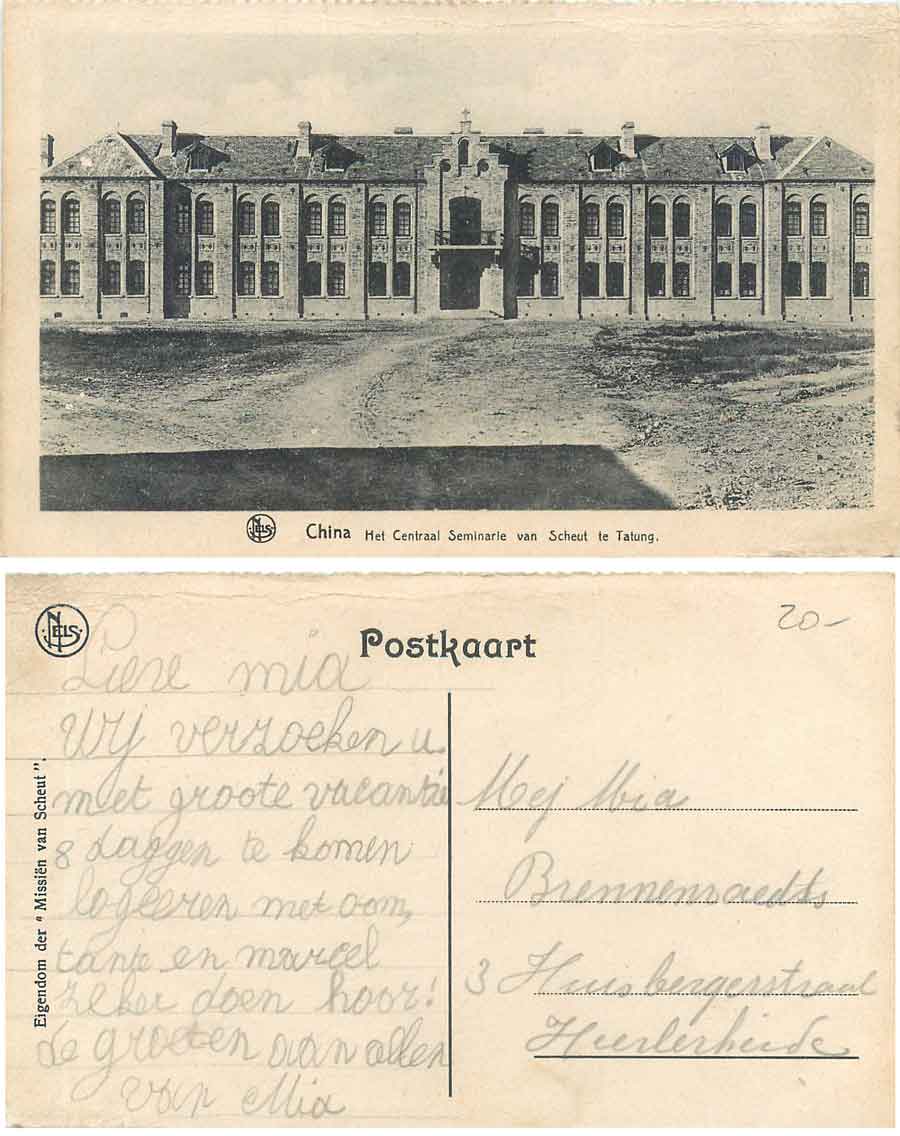 NELS China Het Centraal Seminarie van Scheut te Tatung.
NELS
Postkaart
20-
Eigendom der "Missiën van Scheut".
Lieve mia
Wij verzoeken u
met groote vacantie
8 daggen te komen
logeeren met oom,
tante en marcel
zeker doen hoor!
de groeten aan allen
van Mia
Mej Mia
Brennenraedts
3 Huisbergerstraat
Heerlerheide